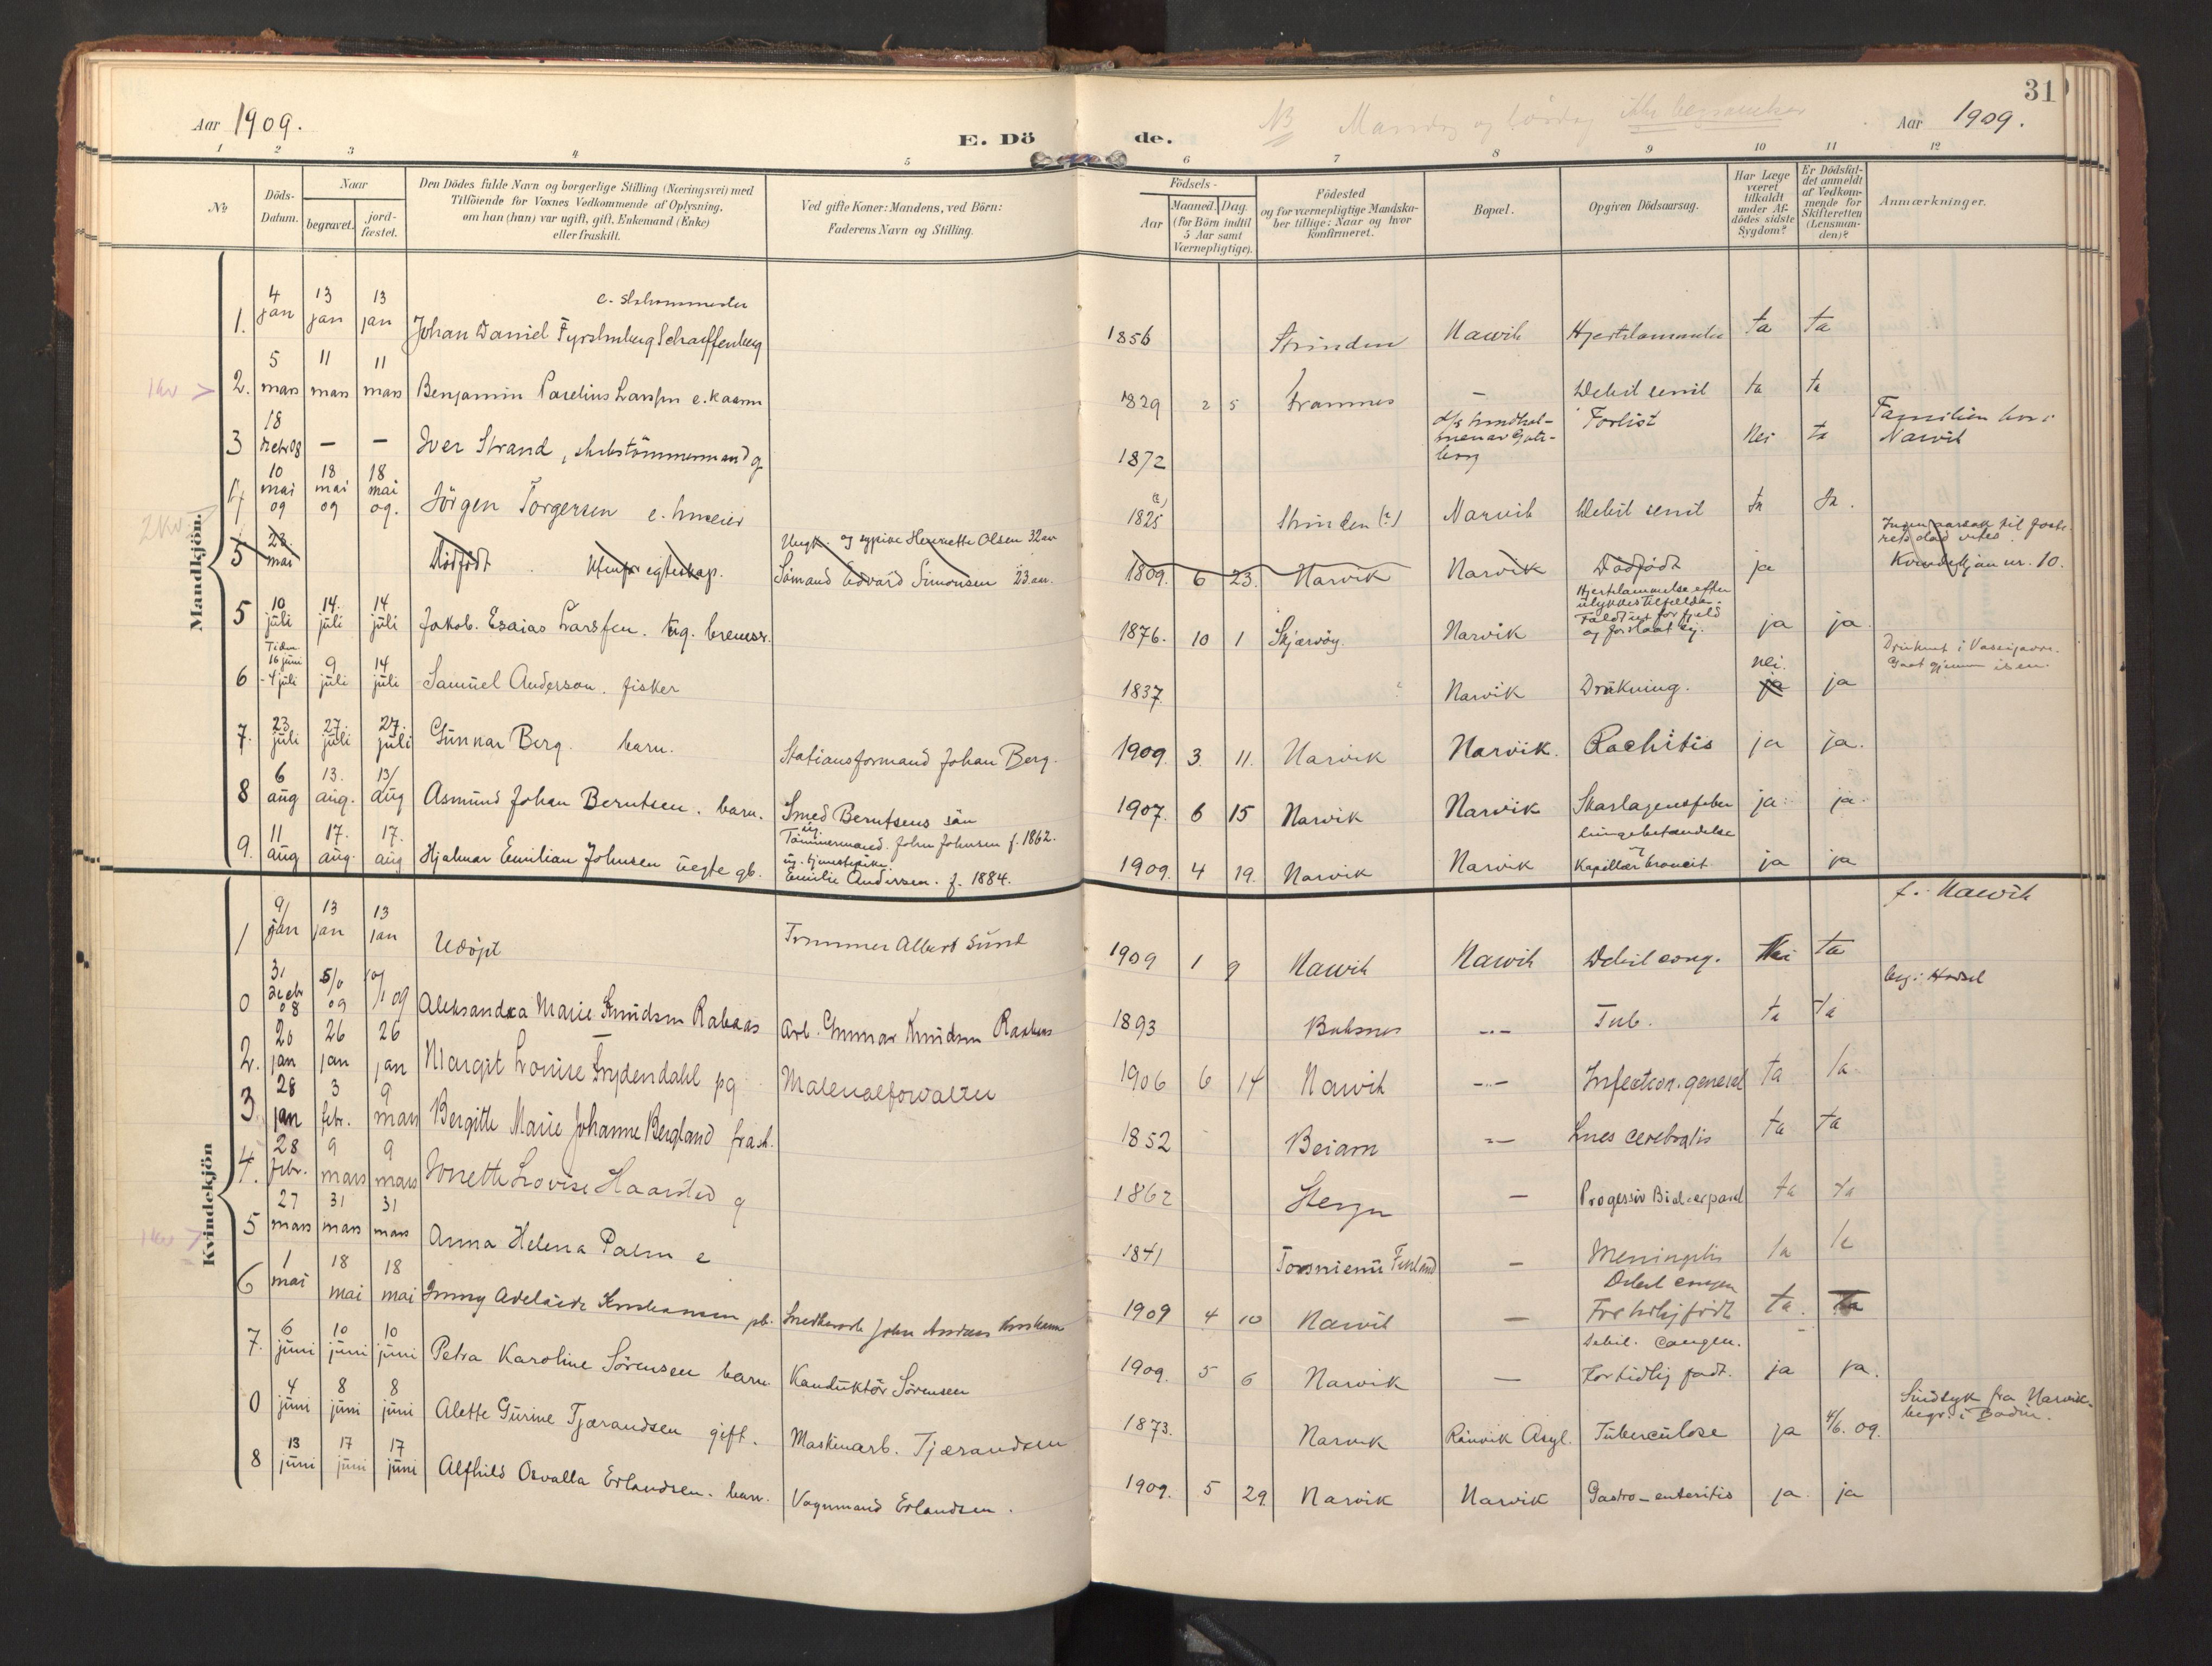 Aar 1909.
E. Dö de.
NB Mandag og Lördag ikke begravelser
Aar 1909.
31
1 2 3 4 5 6 7 8 9 10 11 12
No
Döds-
Datum.
Naar
begravet.
jord-
fæstet.
Den Dödes fulde Navn og borgerlige Stilling (Næringsvei) med
Tilföiende for Voxnes Vedkommende af Oplysning,
om han (hun) var ugift, gift, Enkemand (Enke)
eller fraskilt.
Ved gifte Koner: Mandens, ved Börn:
Faderens Navn og Stilling.
Födsels-
Aar
Maaned. Dag.
(for Börn indtil
5 Aar samt
Værnepligtige).
Födested
og for værnepligtige Mandska-
ber tillige: Naar og hvor
konfirmeret.
Bopæl.
Opgiven Dödsaarsag.
Har Læge
været
tilkaldt
under Af-
dödes sidste
Sygdom?
Er Dödsfal-
det anmeldt
af Vedkom-
mende for
Skifteretten
(Lensman-
den)?
Anmærkninger.
Mandkjön.
1. 4 jan 13 jan 13 jan Johan Daniel Schaffenberg 1856 Strinden Narvik Hjertelammelse ja ja
2. 5 mars 11 mars 11 mars Benjamin Parelius Larssen e. kaarm 1829 2 5 Trannes — Debil senil ja ja
3 18 decbr 08 — — Iver Strand, skibstömmermand g. 1872 Forlist Nei ja Familien bor i
Narvik
4 10 mai 09 18 mai 09 18 mai 09. Jörgen Torgersen e. 1825 (?) Strinden (?) Narvik Debil senil ja ja.
5 23. mai Dödfödt. Utenfor egteskap. Ungk. og sypike Henriette Olsen 32 aar
Sömand Edvard Simonsen 23 aar. 1809. 6 23. Narvik Narvik Dödfödt ja Ingen aarsak til foste-
rets död vites.
Kvindekjön nr. 10.
5 10 juli 14. juli 14 juli Jakob Esaias Larssen. ug. bremser. 1876. 10 1 Skjærvöy. Narvik Hjertelammelse efter
ulykkestilfelde.
Faldt ut for fjeld
og forslaat sig. ja ja.
6 Tiden 16 juni - 4 juli 9 juli 14 juli Samuel Anderson. fisker 1837. Narvik Drukning. nei. ja ja Druknet i Vassijaure.
Gaat gjennem isen.
7. 23 juli 27. juli 27. juli Gunnar Berg. barn. Stationsformand Johan Berg. 1909. 3. 11. Narvik Narvik. Rachitis ja ja.
8 6 aug 13. aug. 13/ aug Asmund Johan Berntsen. barn. Smed Berntsens sön 1907. 6 15 Narvik Narvik Skarlagensfeber ja. ja.
9. 11 aug 17. aug. 17. aug Hjalmar Emilian Johnsen uegte gb. ug. Tömmermand. John Johnsen f. 1862.
ug. tjenestepike
Emilie Andersen. f. 1884. 1909. 4 19. Narvik Narvik Lungebetændelse
Kapillær broncit ja ja
Kvindekjön
1 9/ jan 13 jan 13 jan Udöpt Trimmer Albert Sund 1909 1 9 Narvik Narvik Debil cong. Nei ja f. i Narvik
0 31 decbr 08 5/1 09 Aleksandra Marie Knudsen Rabaas Arb. Gunnar Knudsen 1893 Buksnes -"- Tub. ja ja beg. i Hadsel
2. 20 jan 26 jan 26 jan Margit Lovise Frydendahl pg Materialforvalter 1906 6 14 Narvik -"- Infection. general ja ja
3 28 jan 3 febr. 9 mars Bergitte Marie Johanne Bergland frask. 1852 Beiarn -"- Lues cerebralis ja ja
4. 28 febr. 9 mars 9 mars Lovise Haarsted g 1862 — ja ja
5 27 mars 31 mars 31 mars Anna Helena Palm e 1841 Finland — Meningitis ja ja
6 1 mai 18 mai 18 mai Adelaide Kristiansen pb. John Andreas Kristiansen 1909 4 10 Narvik — Debil congen
For tidlig födt ja. ja
7. 6 juni 10 juni 10 juni Petra Karoline Sörensen barn. Konduktör Sörensen 1909. 5 6 Narvik — Debil. congen.
For tidlig födt. ja ja.
0 4 juni 8 juni 8 juni Alette Gurine Tjærandsen gift. Maskinarb. Tjærandsen 1873. Narvik Rönvik Asyl. Tuberculose ja 4/6. 09. Sindsyk fra Narvik.
begr. i Bodin.
8 13 juni 17 juni 17 juni Alfhild Osvalla Erlandsen. barn. Vognmand Erlandsen. 1909. 5 29 Narvik Narvik Gastro-enteritis ja ja